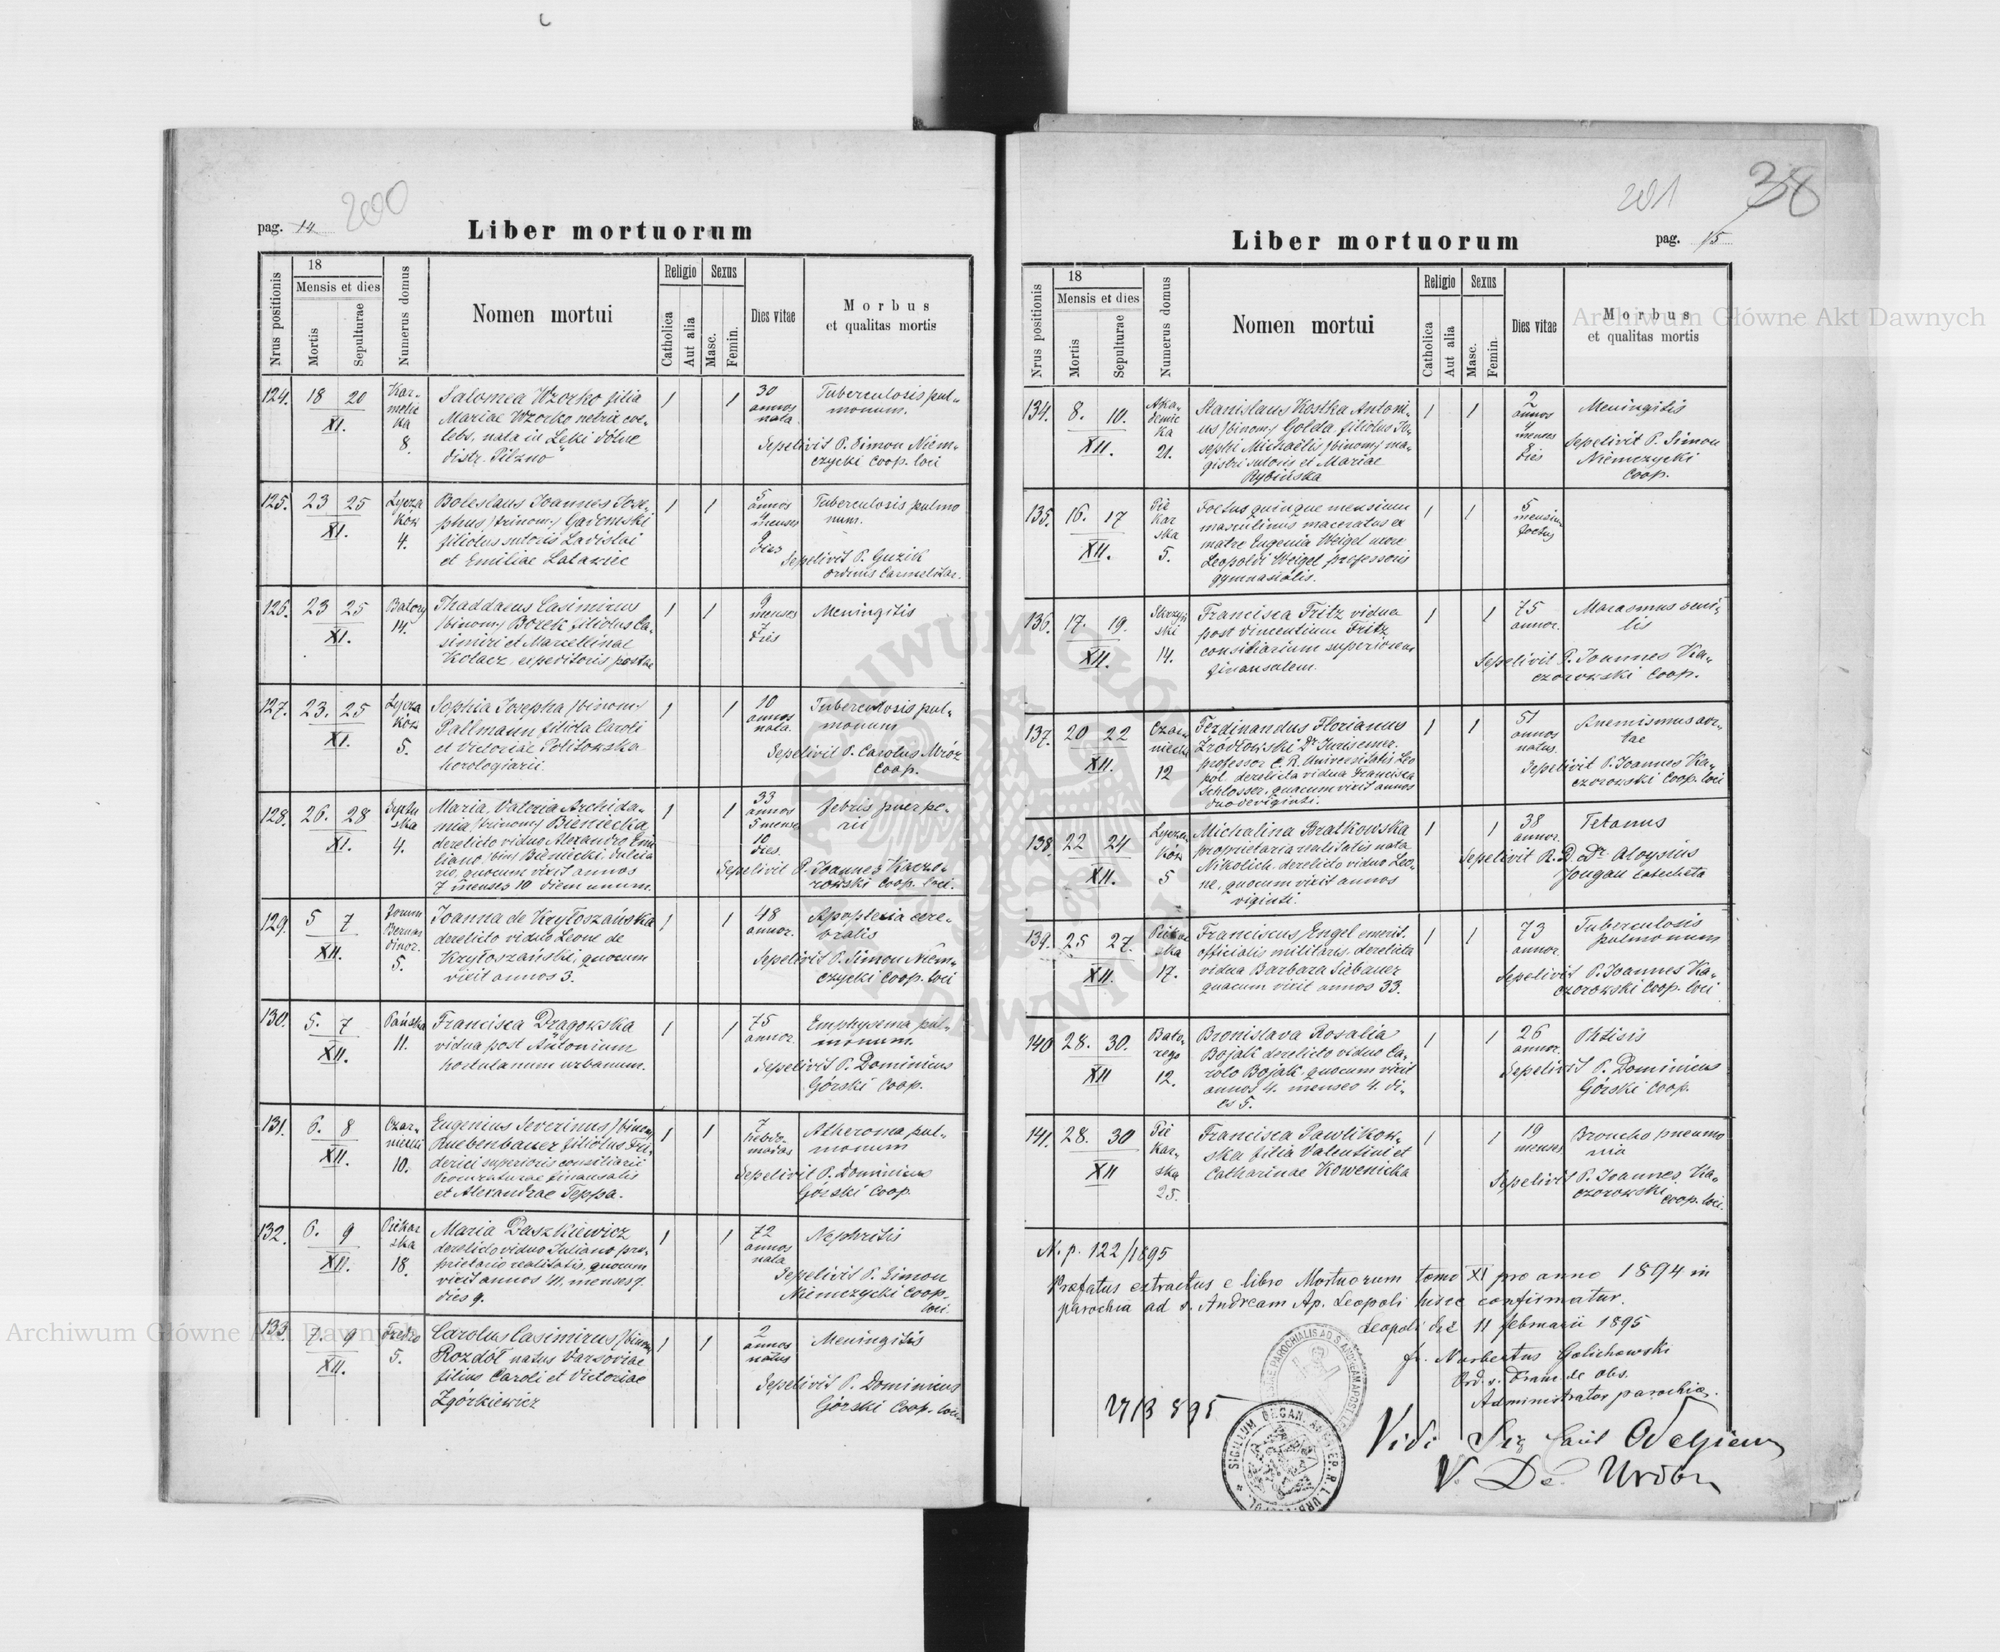 200
pag. 14
Liber mortuorum
Nrus positionis
18
Mensis et dies
Mortis
Sepulturae
Numerus domus
Nomen mortui
Religio
Catholica
Aut alia
Sexus
Masc.
Femin.
Dies vitae
Morbus
et qualitas mortis
124. 18 20 XI. Karmelicka 8.
Salomea Wzorko filia
Mariae Wzorko netrix coe-
lebs, nata in Łęki dólne
distr. Pilzno
1 1
30
annos
nata
Tuberculosis pul-
monum.
Sepelivit P. Simon Niem-
czycki Coop. loci
125. 23 25 XI. Łycza
ków
4.
Boleslaus Joannes Jose-
phus /trinom./
filiolus sutoris Ladislai
et Emiliae Latawiec
1 1
5
annos
4
menses
9
dies
Tuberculosis pulmo
num.
Sepelivit P. Guzik
ordinis Carmelitar.
126. 23 25 XI. Batory
14.
Thaddaeus Casimirus
/binom/ Borek filiolus Ca-
simiri et Marcellinae
Kolacz, expeditoris postae
1 1
9
menses
7
dies
Meningitis
127. 23. 25 XI. Łycza
ków
5.
Sophia Josepha /binom/
Pallmann filiola Caroli
et Victoriae Politowska
horologiarii.
1 1
10
annos
nata.
Tuberculosis pul-
monum
Sepelivit P. Carolus Mróz
Coop.
128. 26. 28 XI.
ska
4.
Maria Valeria Archida-
mia /trinom/ Biesiecka,
derelicto viduo Alexandro Emi
liano /bin/ Biesiecki,
quocum vixit annos
7 menses 10 diem unum.
1 1
33
annos
5 menses
10
dies.
febris puerpe-
rii
Sepelivit P. Joannes Kaczo-
rowski Coop. loci.
129. 5 7 XII.
Bernar
dinor.
5.
Joanna de Kryłoszańska
derelicto viduo Leone de
Kryłoszański, quocum
vixit annos 3.
1 1
48
annor.
Apoplexia cere-
bralis
Sepelivit P. Simon Niem-
czycki Coop. loci
130. 5. 7 XII. Pańska
11.
Francisca Dragowska
vidua post Antonium
hortulanum urbanum.
1 1
75
annor.
Emphysema pul-
monum.
Sepelivit P. Dominicus
Górski Coop.
131. 6. 8 XII. Czar-
niecki
10.
Eugenius Severinus /binom/
Ruebenbauer filiolus Fri-
derici superioris consiliarii
Procuraturae finansalis
et Alexandrae Teppa.
1 1
7
hebdo-
madas
Atheroma pul-
monum
Sepelivit P. Dominicus
Górski Coop.
132. 6. 9 XII. Piekar
ska
18.
Maria Daszkiewicz
derelicto viduo Juliano pro-
prietario realitatis, quocum
vixit annos 41, menses 7.
dies 9.
1 1
72
annos
nata
Nephritis
Sepelivit P. Simon
Niemczycki Coop.
loci.
133. 7. 9 XII. Fredro
5.
Carolus Casimirus /binom/
Rozdół natus Varsoviae
filius Caroli et Victoriae
Zgórkiewicz
1 1
2
annos
natus
Meningitis
Sepelivit P. Dominicus
Górski Coop. loci
201
38
Liber mortuorum
pag. 15
Nrus positionis
18
Mensis et dies
Mortis
Sepulturae
Numerus domus
Nomen mortui
Religio
Catholica
Aut alia
Sexus
Masc.
Femin.
Dies vitae
Morbus
et qualitas mortis
134. 8. 10. XII. Aka-
demic
ka
21.
Stanislaus Kostka Antoni-
us /binom/ Golda filiolus Jo-
sephi Michaëlis /binom/ ma-
gistri sutoris et Mariae
Rybińska
1 1
2
annos
4
menses
8
dies
Meningitis
Sepelivit P. Simon
Niemczycki
Coop.
135. 16. 17 XII. Pie
kar
ska
5.
Foetus quinque mensium
masculinus maceratus ex
matre Eugenia Weigel uxore
Leopoldi Weigel professoris
gymnasialis.
1 1
5
mensium
foetus
136. 17. 19. XII.
ski
14.
Francisca Fritz vidua
post Vincentium Fritz
consiliarium superiorem
finansalem.
1 1
75
annor.
Marasmus seni-
lis
Sepelivit P. Joannes Ka-
czorowski Coop.
137. 20 22 XII. Czar-
niecki
12
Ferdinandus Florianus
Źródłowski Dr Juris emer.
professor C. R. Universitatis Leo
pol. derelicta vidua Francisca
Schlosser, quacum vixit annos
duodeviginti.
1 1
51
annos
natus.
Anemismus aor-
tae
Sepelivit P. Joannes Ka-
czorowski Coop. loci
138. 22 24 XII. Łycza
ków
5
Michalina Bratkowska
proprietaria realitatis nata
Nikolich, derelicto viduo Leo-
ne, quocum vixit annos
viginti.
1 1
38
annor.
Tetanus
Sepelivit R. D. Dr Aloysius
Jougan Catecheta
139. 25 27. XII. Piekar
ska
17.
Franciscus Engel emerit.
officialis militaris, derelicta
vidua Barbara Siebauer
quacum vixit annos 33.
1 1
73
annor.
Tuberculosis
pulmonum
Sepelivit P. Joannes Ka-
czorowski Coop. loci
140 28. 30. XII Bato-
rego
12.
Bronislava Rosalia
Bojak derelicto viduo Ca-
rolo Bojak, quocum vixit
annos 4. menses 4. di-
es 5.
1 1
26
annor.
Phtisis
Sepelivit P. Dominicus
Górski Coop.
141. 28. 30 XII Pie
kar-
ska
25.
Francisca Pawlikow-
ska filia Valentini et
Catharinae Kowenicka
1 1
19
menses
Broncho pneumo
nia
Sepelivit P. Joannes Ka-
czorowski
Coop. loci.
N. p. 122/1895
Praefatus extractus e libro Mortuorum tomo XI pro anno 1894 in
parochia ad s. Andream Ap. Leopoli hisce confirmatur.
Leopoli die 11 februarii 1895
fr. Norbertus Golichowski
Ord. s. Franc. de obs.
Administrator parochiae.
27/3 895
Vidi
Archiwum Główne Akt Dawnych
Archiwum Główne Akt Dawnych
ARCHIWUM GŁÓWNE AKT DAWNYCH